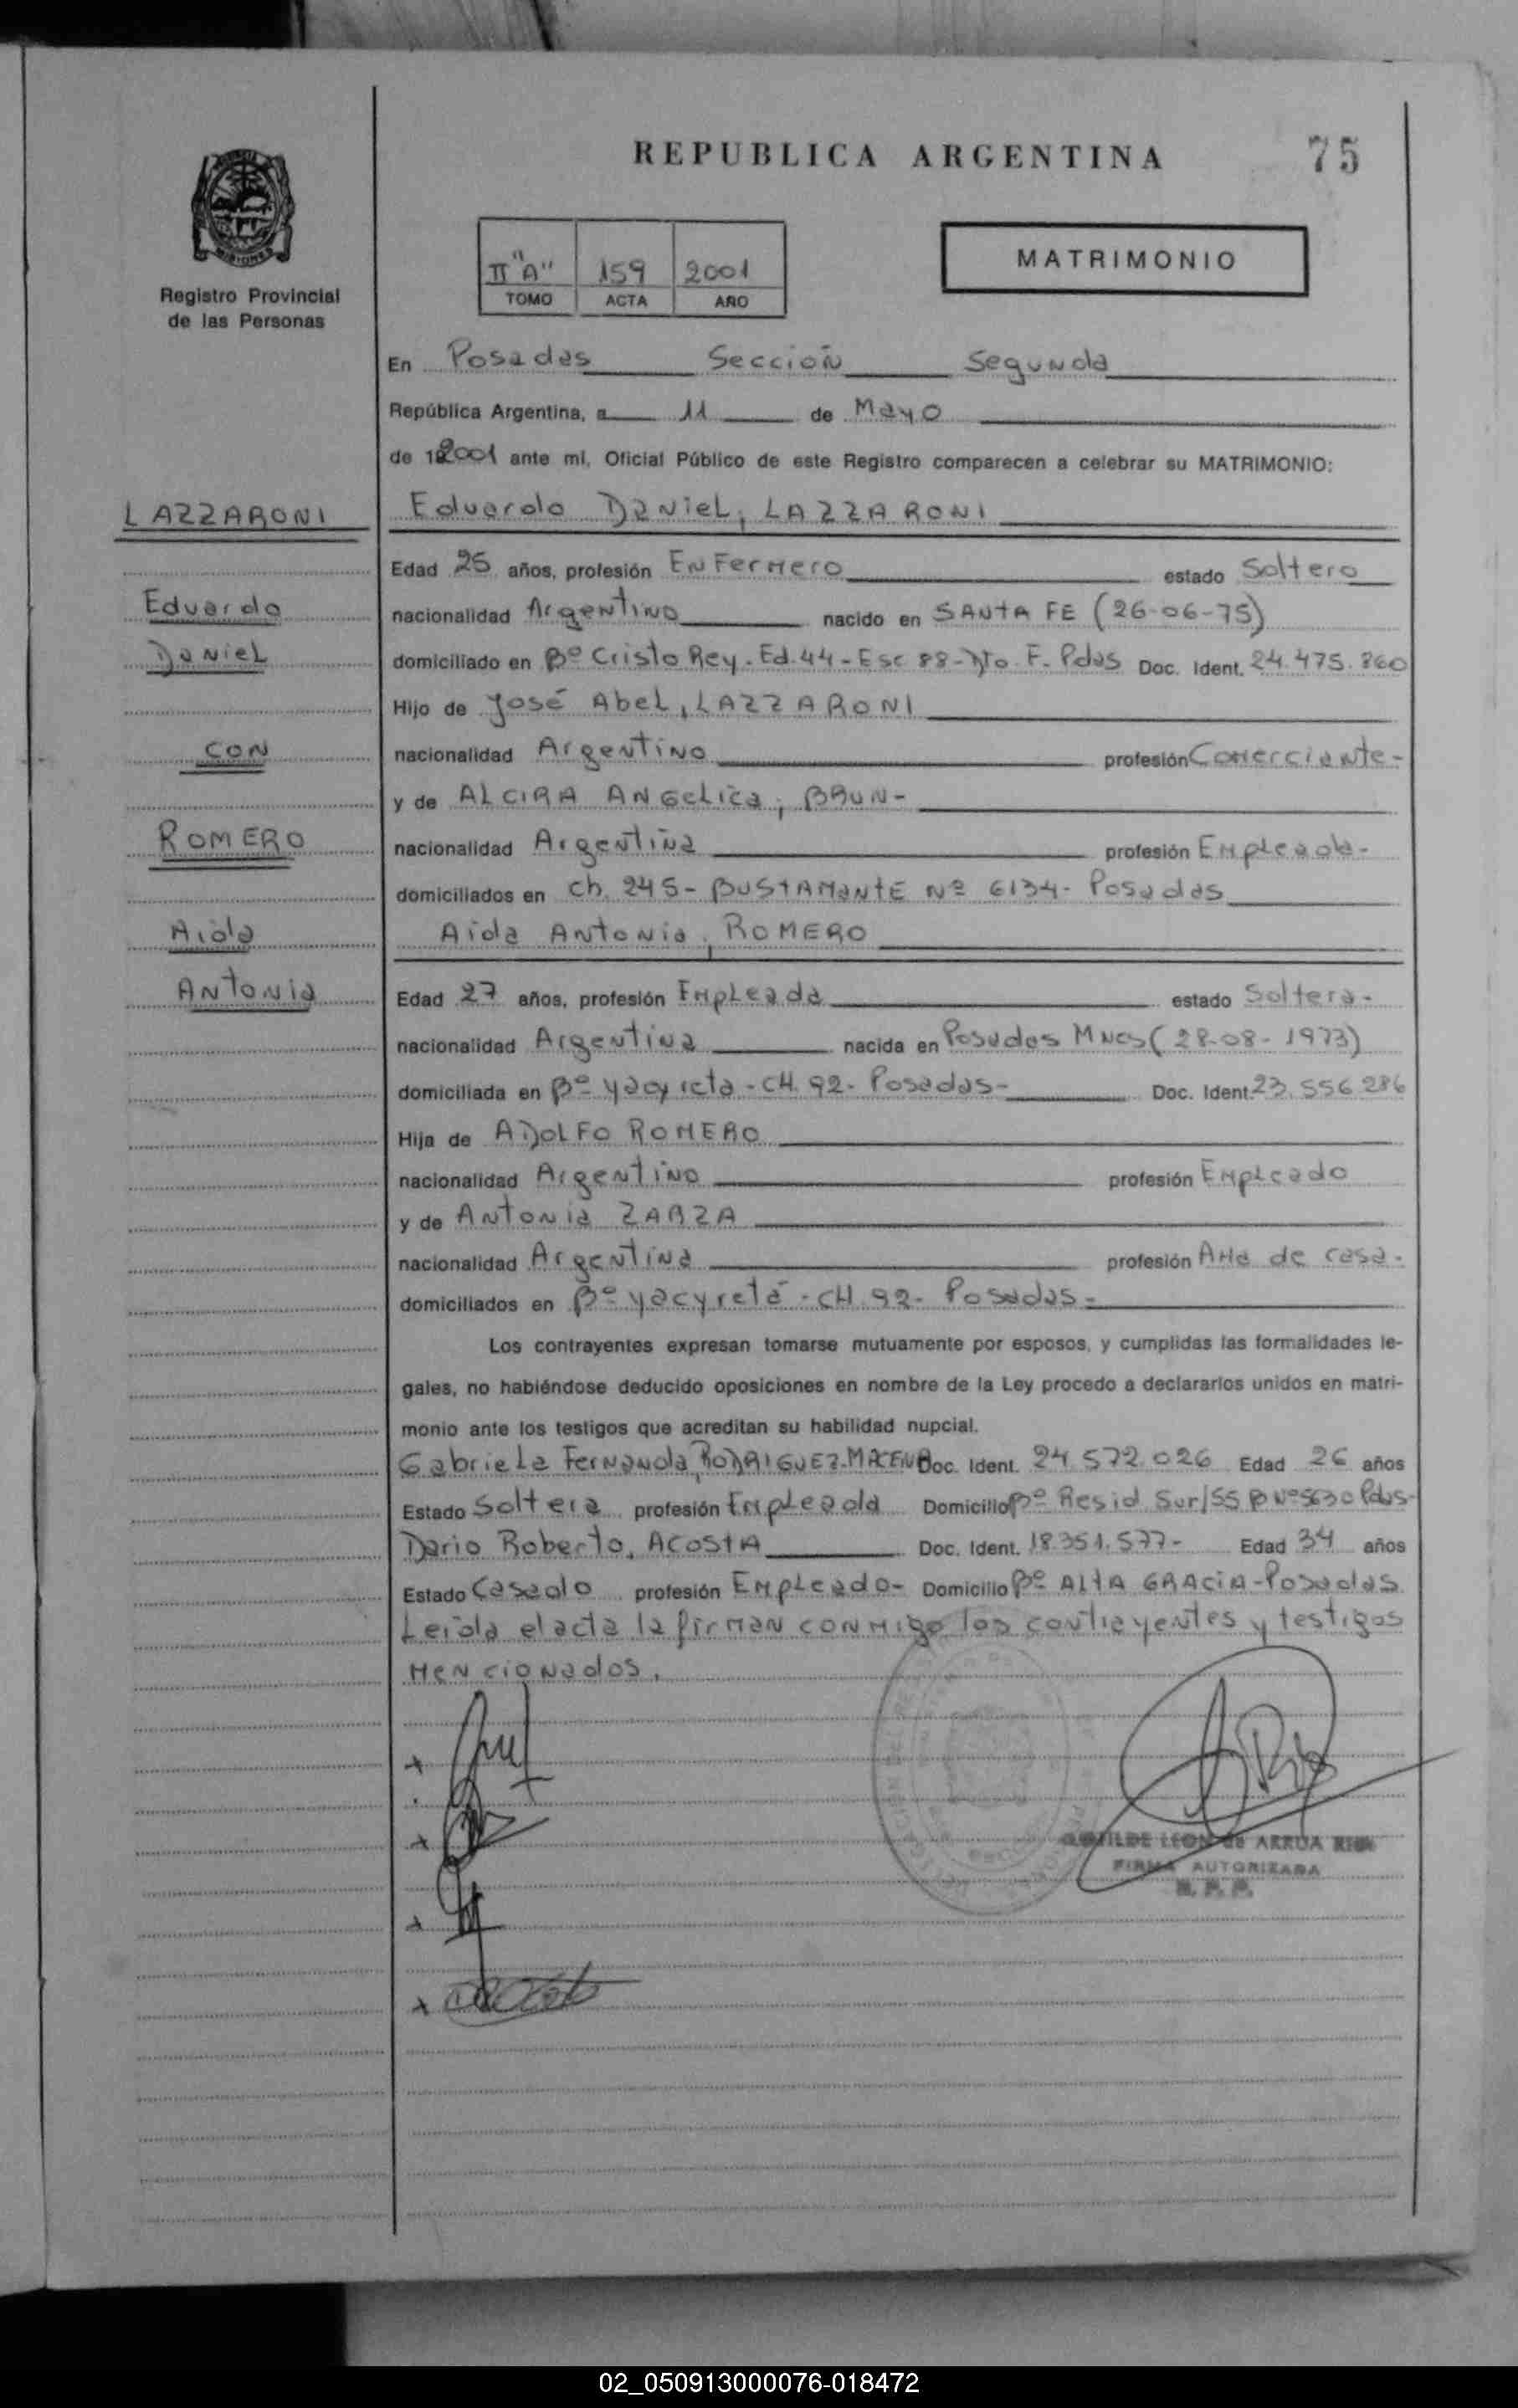 REPUBLICA ARGENTINA
75
MISIONES
Registro Provincial
de las Personas
II "A" 159 2001
TOMO ACTA AÑO
MATRIMONIO
En Posadas Sección Segunda
República Argentina, a 11 de Mayo
de 2001 ante mí, Oficial Público de este Registro comparecen a celebrar su MATRIMONIO:
LAZZARONI
Eduardo Daniel, LAZZARONI
Edad 25 años, profesión Enfermero estado Soltero
Eduardo
nacionalidad Argentino nacido en SANTA FE (26-06-75)
Daniel
domiciliado en Bº Cristo Rey - Ed. 44 - Esc 88 - Dto. F. Pdas Doc. Ident. 24.475.860
Hijo de José Abel, LAZZARONI
CON
nacionalidad Argentino profesión Comerciante -
y de ALCIRA ANGelica, BRUN -
ROMERO
nacionalidad Argentina profesión Empleada -
domiciliados en Ch. 245 - BUSTAMANTE Nº 6134 - Posadas
Aida
Aida Antonia, ROMERO
Antonia
Edad 27 años, profesión Empleada estado Soltera -
nacionalidad Argentina nacida en Posadas Mnes (28-08-1973)
domiciliada en Bº yacyreta - CH. 92 - Posadas - Doc. Ident. 23.556.286
Hija de ADOLFO ROMERO
nacionalidad Argentino profesión Empleado
y de Antonia ZARZA
nacionalidad Argentina profesión Ama de casa -
domiciliados en Bº yacyretá - CH. 92 - Posadas -
Los contrayentes expresan tomarse mutuamente por esposos, y cumplidas las formalidades le-
gales, no habiéndose deducido oposiciones en nombre de la Ley procedo a declararlos unidos en matri-
monio ante los testigos que acreditan su habilidad nupcial.
Gabriela Fernanda, RODRIGUEZ Doc. Ident. 24.572.026 Edad 26 años
Estado Soltera profesión Empleada Domicilio Bº Resid Sur/SS B Nº 5630 Pdas -
Dario Roberto, ACOSTA Doc. Ident. 18.351.577 - Edad 34 años
Estado Casado profesión Empleado - Domicilio Bº ALTA GRACIA - Posadas
Leida el acta la firman conmigo los contrayentes y testigos
mencionados.
LEON de ARRUA
FIRMA AUTORIZADA
02_050913000076-018472